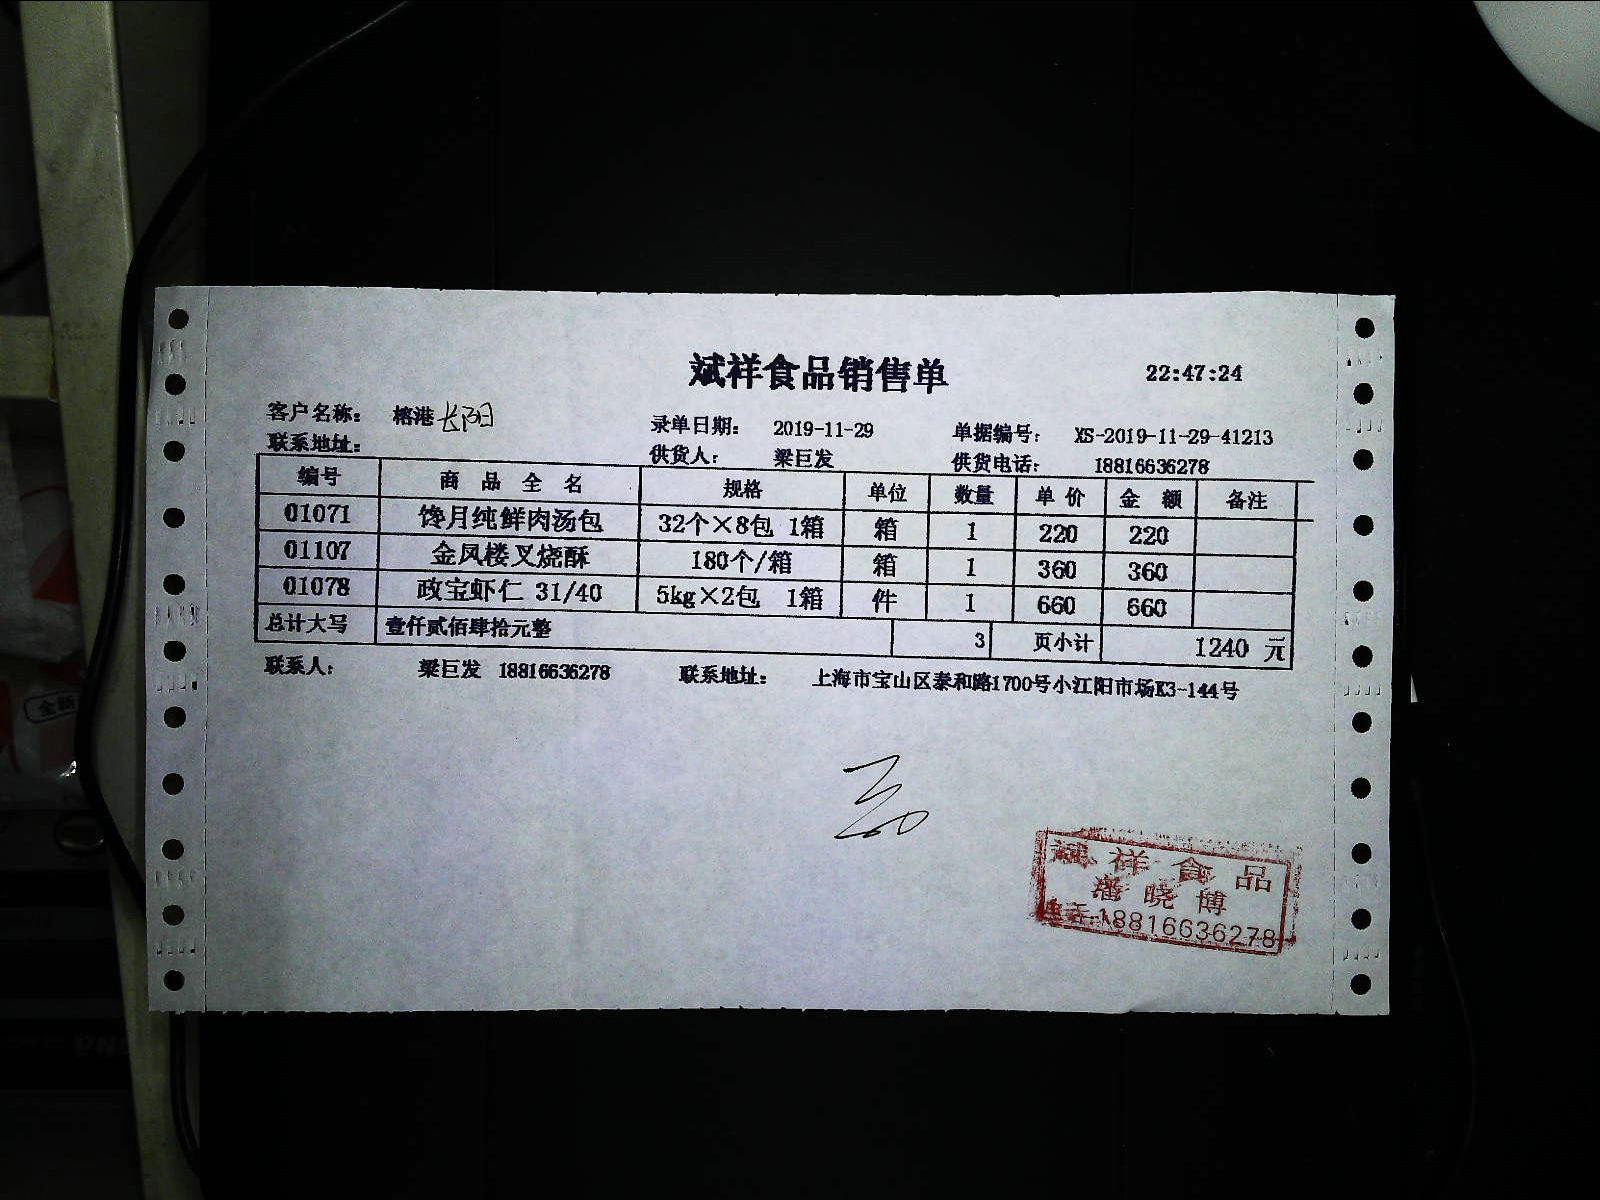 斌祥食品销售单 22:47:24
客户名称： 榕港长阳 录单日期： 2019-11-29 单据编号： XS-2019-11-29-41213
联系地址： 供货人： 梁巨发 供货电话： 18816636278
编号 商品全名 规格 单位 数量 单价 金额 备注
01071 馋月纯鲜肉汤包 32个×8包 1箱 箱 1 220 220
01107 金凤楼叉烧酥 180个/箱 箱 1 360 360
01078 政宝虾仁 31/40 5kg×2包 1箱 件 1 660 660
总计大写 壹仟贰佰肆拾元整 3 页小计 1240 元
联系人： 梁巨发 18816636278 联系地址： 上海市宝山区泰和路1700号小江阳市场E3-144号
斌祥食品
潘晓博
电话:18816636278
全新